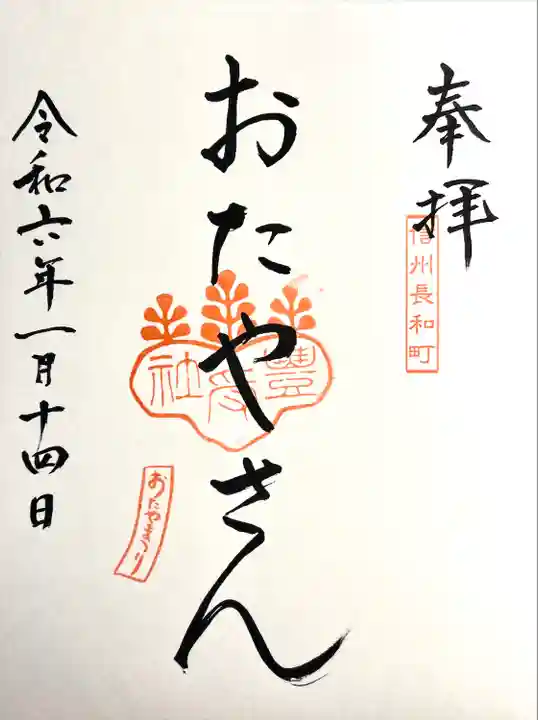 奉拝
信州長和町
おたやさん
豊受社
おたやまつり
令和六年一月十四日